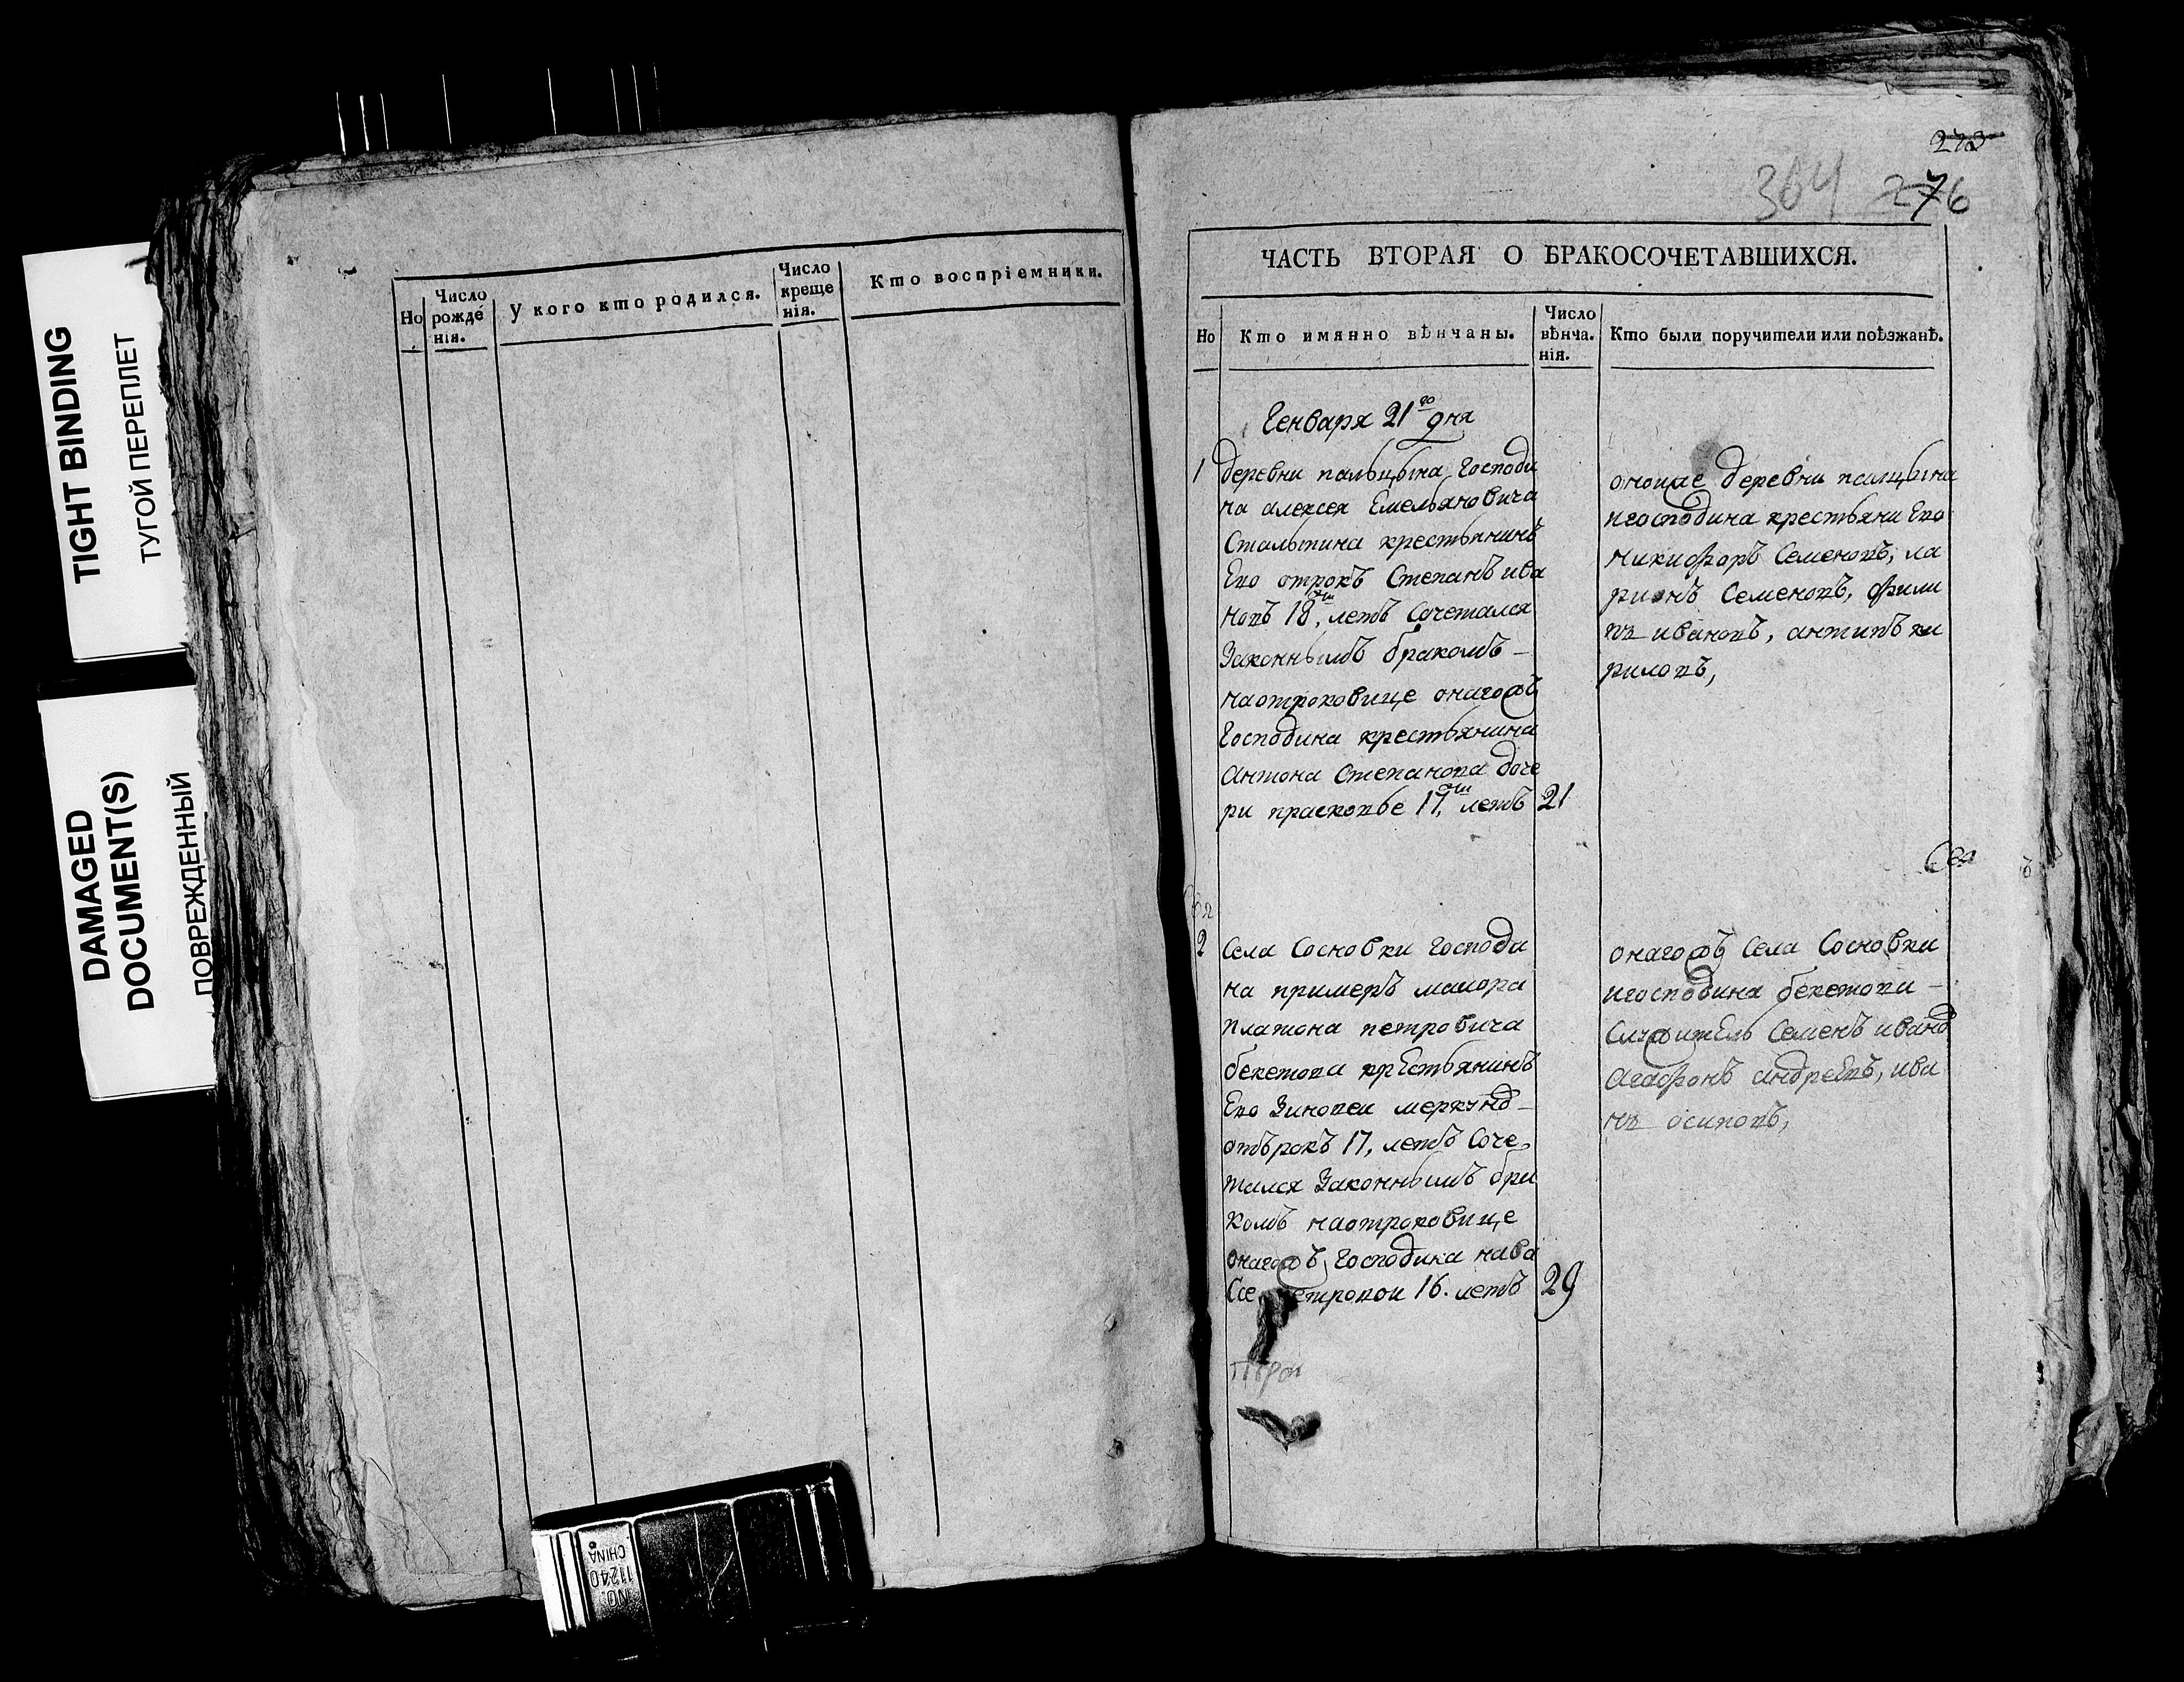 TIGHT BINDING
ТУГОЙ ПЕРЕПЛЕТ
DAMAGED
DOCUMENT(S)
ПОВРЕЖДЕННЫЙ
Но
Число рожде нія.
У кого кто родился.
Число креще нія.
Кто воспріемники.
NO.
11240
CHINA
364 276
ЧАСТЬ ВТОРАЯ О БРАКОСОЧЕТАВШИХСЯ.
Но
Кто имянно вѣнчаны.
Число вѣнча. нія.
Кто были поручители или поѣзжанѣ.
Генваря 21го дня
1 деревни пальцына Господи
на алексея Емельяновича
Столыпина крестьянинъ
Ево отрокъ Степанъ ива
новъ 18, летъ Сочетался
Законнымъ бракомъ –
наотроковице онагожъ
Господина крестьянина
антона Степанова доче
ри прасковье 17, летъ 21
оноиже деревни палцына
игосподина крестьяни Ево
никифоръ Семеновъ, ла
рионъ Семеновъ, фили
пъ ивановъ, антипъ ки
риловъ,
2 Села Сосновки господи
на примеръ маиора
платона петровича
бекетова крЕстьянинъ
Ево Зиновеи
отърокъ 17, летъ Соче
тался Законнымъ бра
комъ наотроковице
онагожъ господина нава
етровои 16. летъ 29
онагожъ Села Сосновки
игосподина бекетова –
Служитель Семенъ
агафонъ андреевъ, ива
нъ осиповъ,